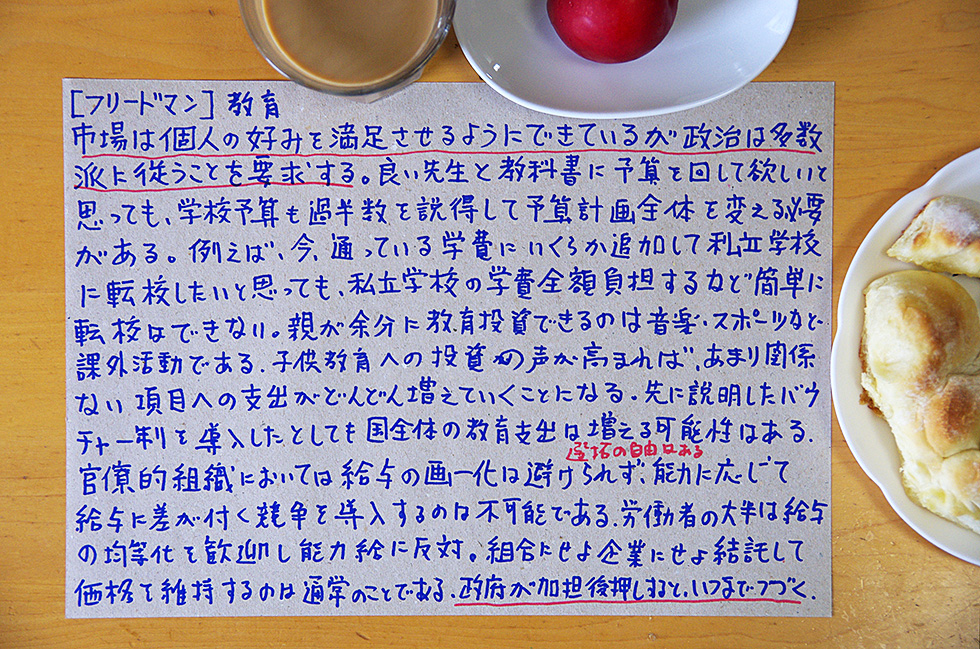 [フリードマン] 教育
市場は個人の好みを満足させるようにできているが政治は多数
派に従うことを要求する。良い先生と教科書に予算を回して欲しいと
思っても、学校予算も過半数を説得して予算計画全体を変える必要
がある。例えば、今、通っている学費にいくらか追加して私立学校
に転校したいと思っても、私立学校の学費全額負担するなど簡単に
転校はできない。親が余分に教育投資できるのは音楽・スポーツなど
課外活動である。子供教育への投資の声が高まれば、あまり関係
ない項目への支出がどんどん増えていくことになる。先に説明したバウ
チャー制を導入したとしても国全体の教育支出は増える可能性はある。
選択の自由はある
官僚的組織においては給与の画一化は避けられず、能力に応じて
給与に差が付く競争を導入するのは不可能である。労働者の大半は給与
の均等化を歓迎し能力給に反対。組合にせよ企業にせよ結託して
価格を維持するのは通常のことである。政府が加担後押しすると、いつまでもつづく。